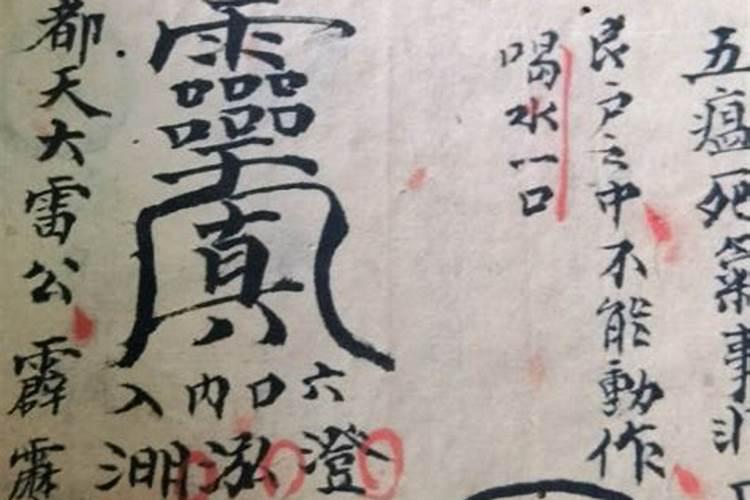 五瘟死氣事
艮户之中不能動作
喝水一口
真
六口内入
澄泓淜
都天大雷公霹靂